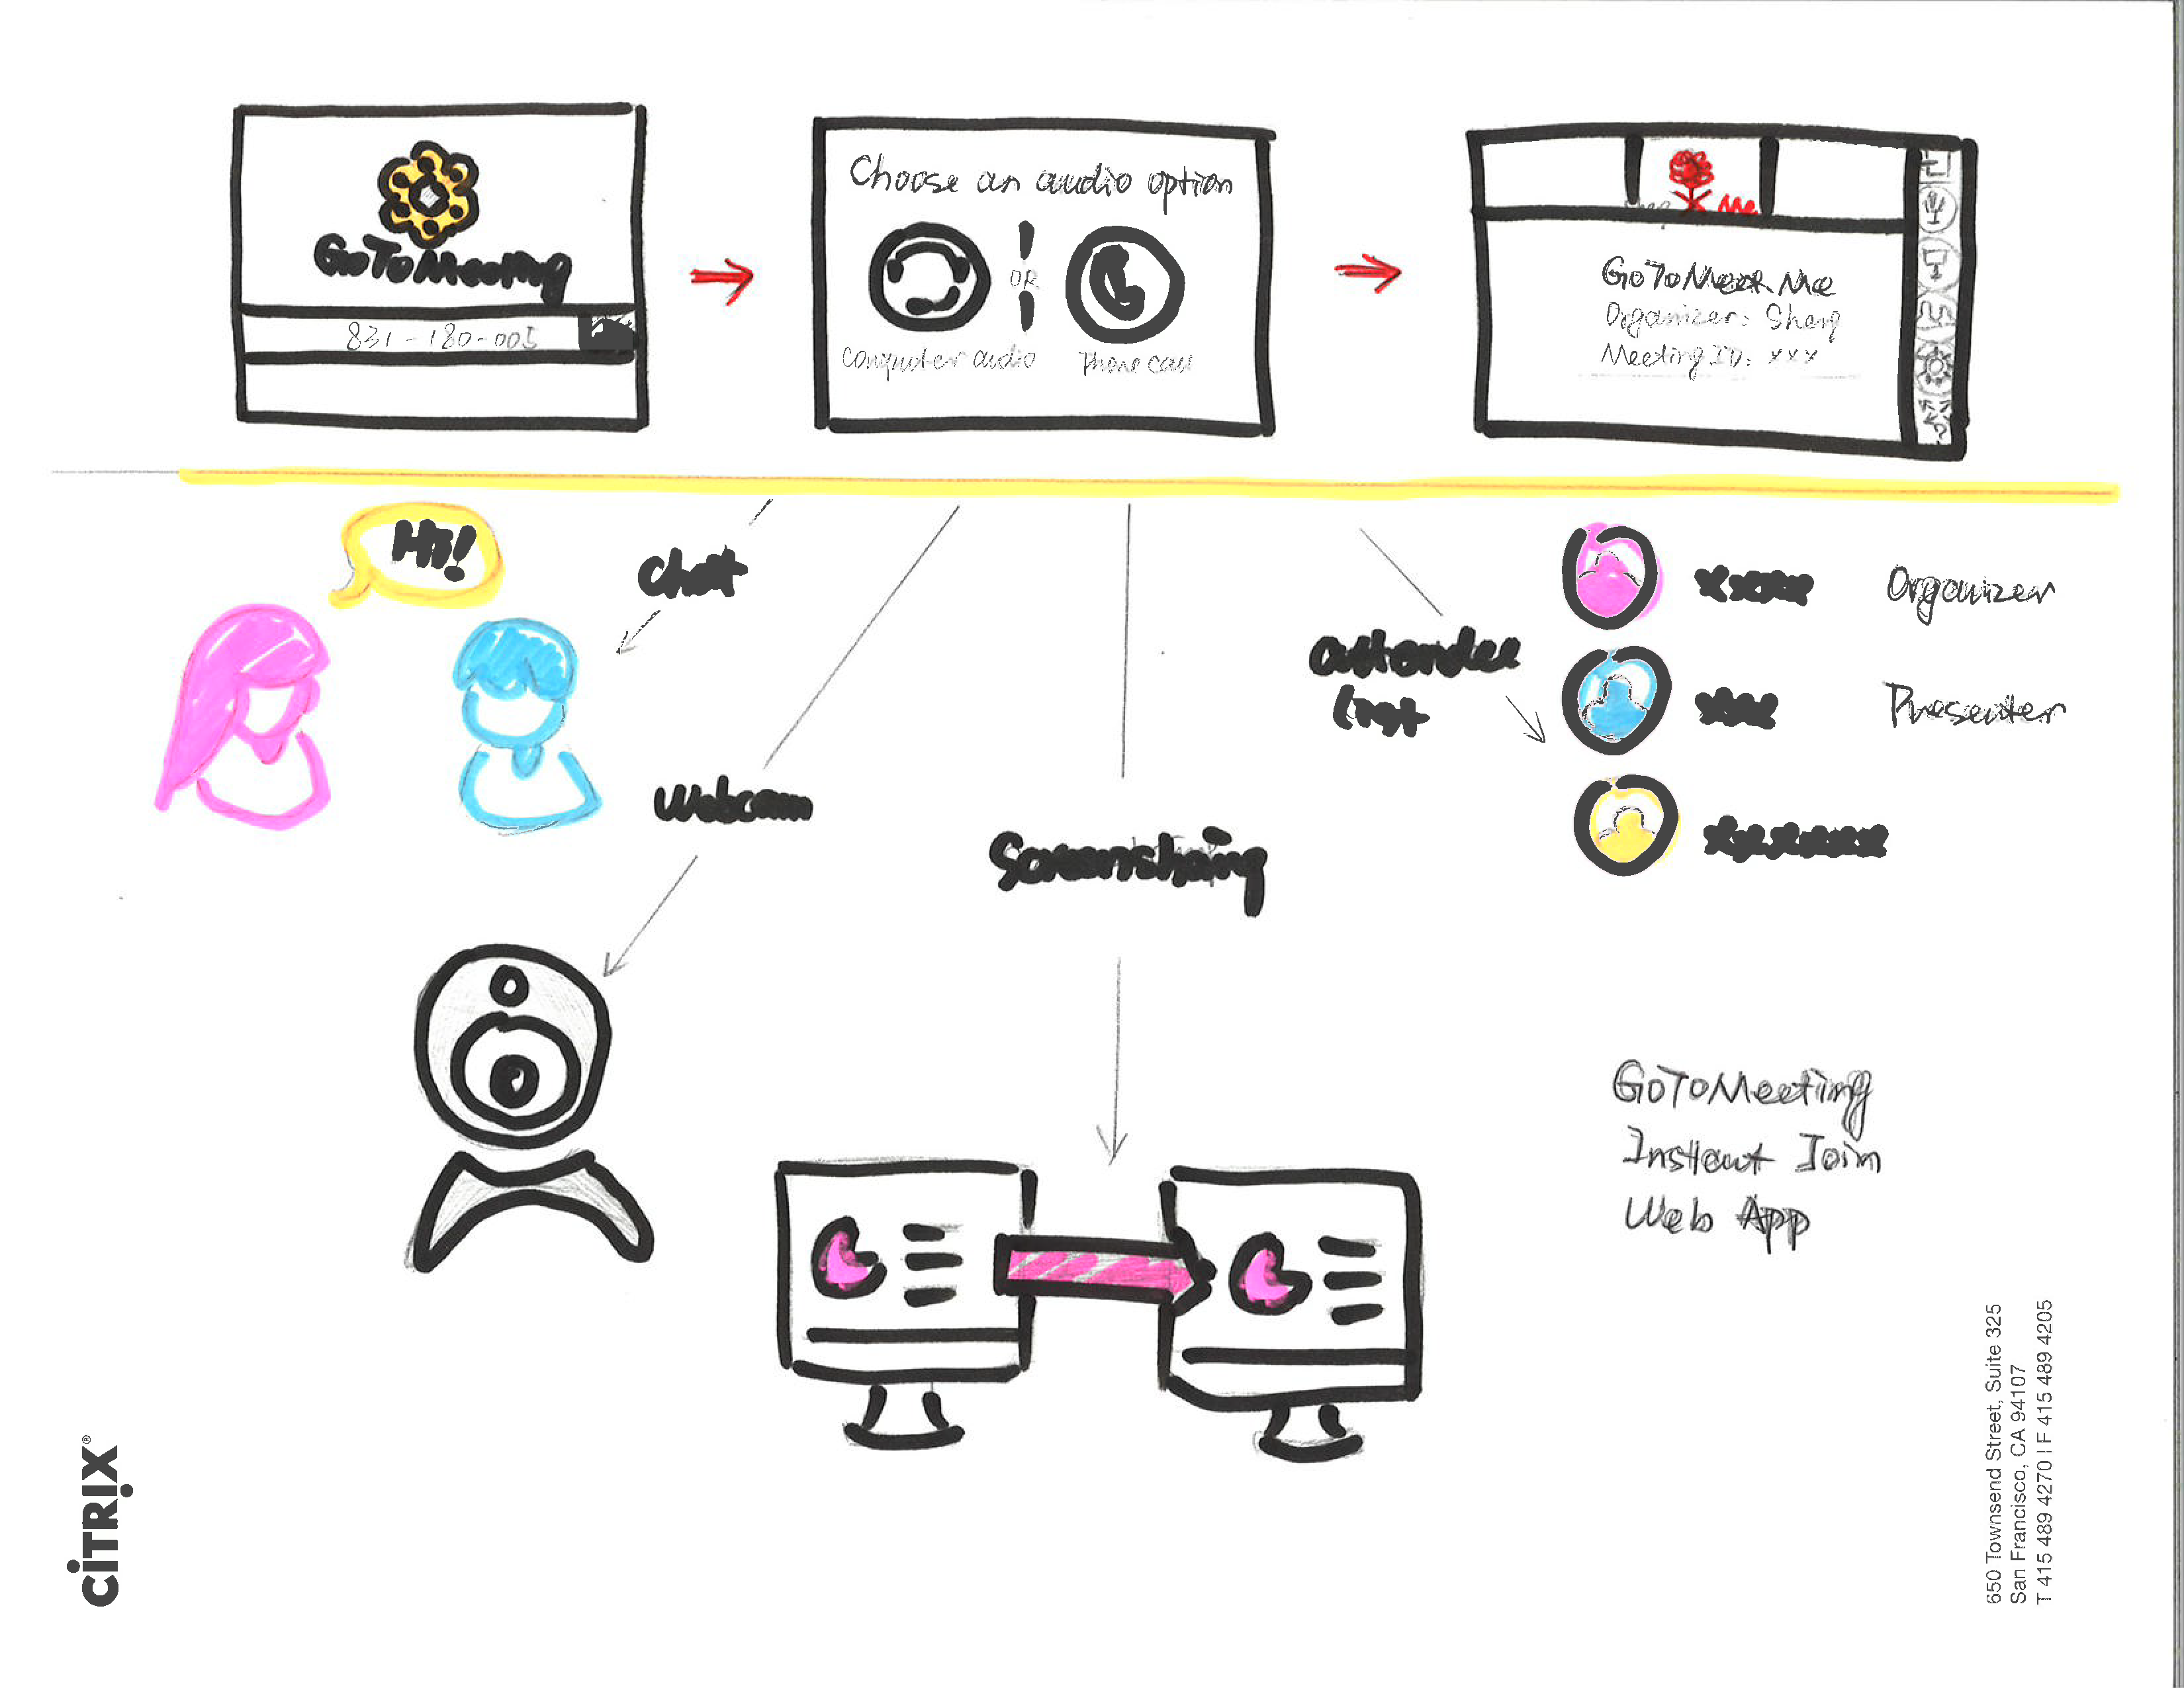 GoToMeeting
831-180-005
Choose an audio option
OR
Computer audio
Phone call
Me
GoToMeet Me
Organizer: Sheng
Meeting ID: xxx
Hi!
Chat
Webcam
Screensharing
attendee
list
xxxxx Organizer
xxx Presenter
GoToMeeting
Instant Join
Web App
CiTRIX®
650 Townsend Street, Suite 325
San Francisco, CA 94107
T 415 489 4270 I F 415 489 4205